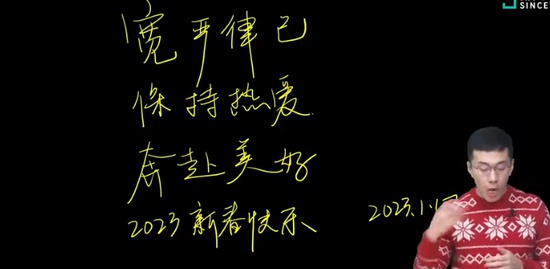 宽严律己
保持热爱
奔赴美好
2023 新春快乐
SINCE